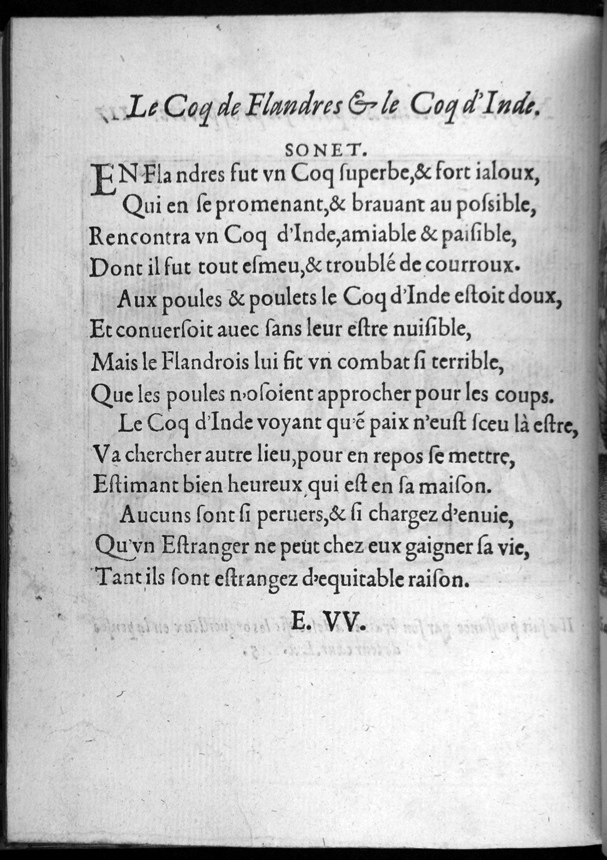 Le Coq de Flandres & le Coq d'Inde.
SONET.
EN Flandres fut vn Coq ſuperbe,& fort ialoux,
Qui en ſe promenant,& brauant au poſſible,
Rencontra vn Coq d'Inde,amiable & paiſible,
Dont il fut tout eſmeu,& troublé de courroux.
Aux poules & poulets le Coq d'Inde eſtoit doux,
Et conuerſoit auec ſans leur eſtre nuiſible,
Mais le Flandrois lui fit vn combat ſi terrible,
Que les poules n'oſoient approcher pour les coups.
Le Coq d'Inde voyant qu'ẽ paix n'euſt ſceu là eſtre,
Va chercher autre lieu,pour en repos ſe mettre,
Eſtimant bien heureux,qui eſt en ſa maiſon.
Aucuns ſont ſi peruers,& ſi chargez d'enuie,
Qu'vn Eſtranger ne peut chez eux gaigner ſa vie,
Tant ils ſont eſtrangez d'equitable raiſon.
E. VV.